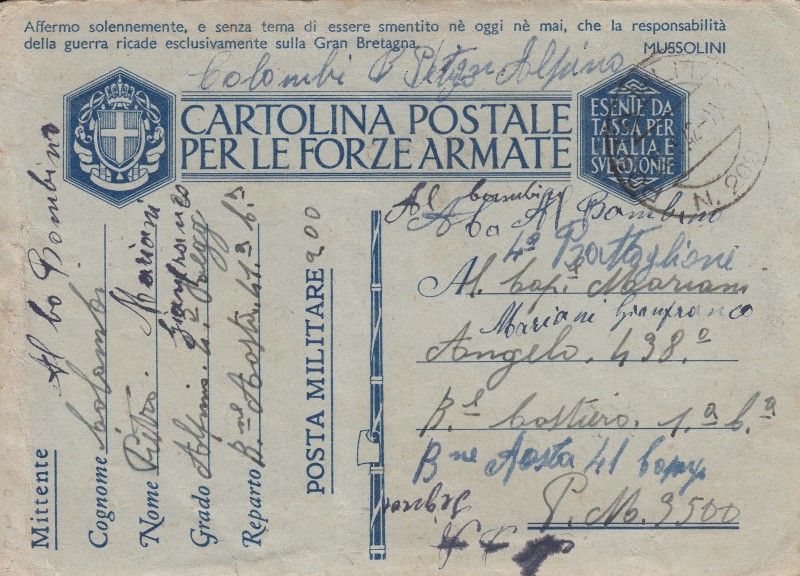 Affermo solennemente, e senza tema di essere smentito nè oggi nè mai, che la responsabilità
della guerra ricade esclusivamente sulla Gran Bretagna.
MUSSOLINI
Colombi Alpino
CARTOLINA POSTALE
PER LE FORZE ARMATE
ESENTE DA
TASSA PER
L'ITALIA E
SVE COLONIE
N. 200
Al bambino
Al Bambino
4º Battaglione
Al Cap. Mariani
Mariani Gianfranco
Angelo. 438.º
B. Costiero. 1.ª b.ª
Bne Aosta 41
P.M. 3500
Al bo Bombino
Mittente
Cognome Colombi
Nome Pietro. Mariani
Gianfranco
Grado Alpino. 4º
Reparto B.ne Aosta. 41.ª b.ª
POSTA MILITARE 200